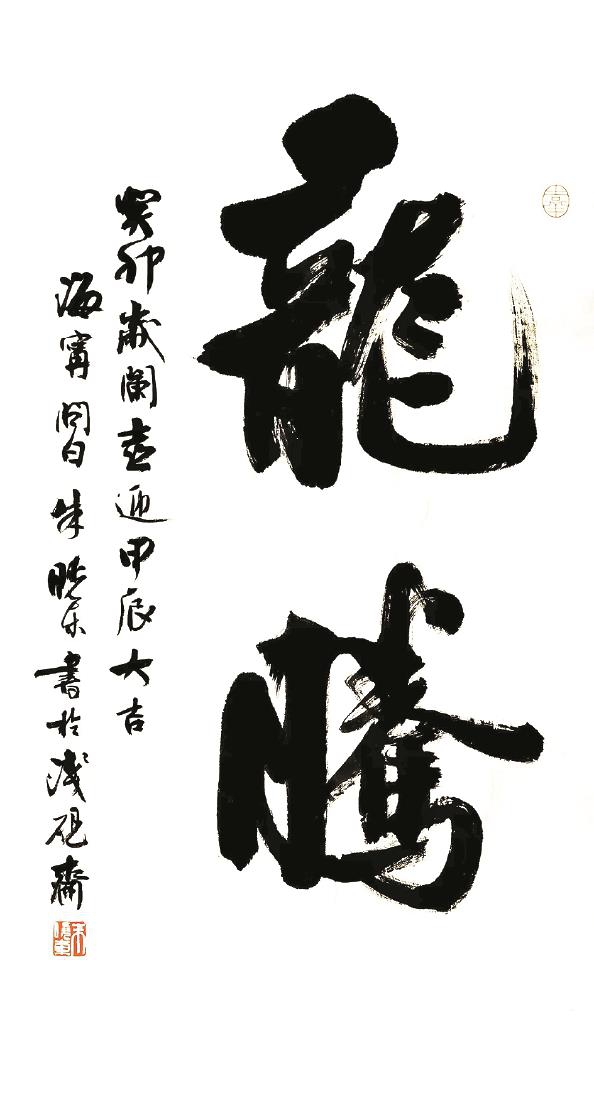 龍騰
癸卯歲闌喜迎甲辰大吉
海寧問白朱曉東書於淺硯齋